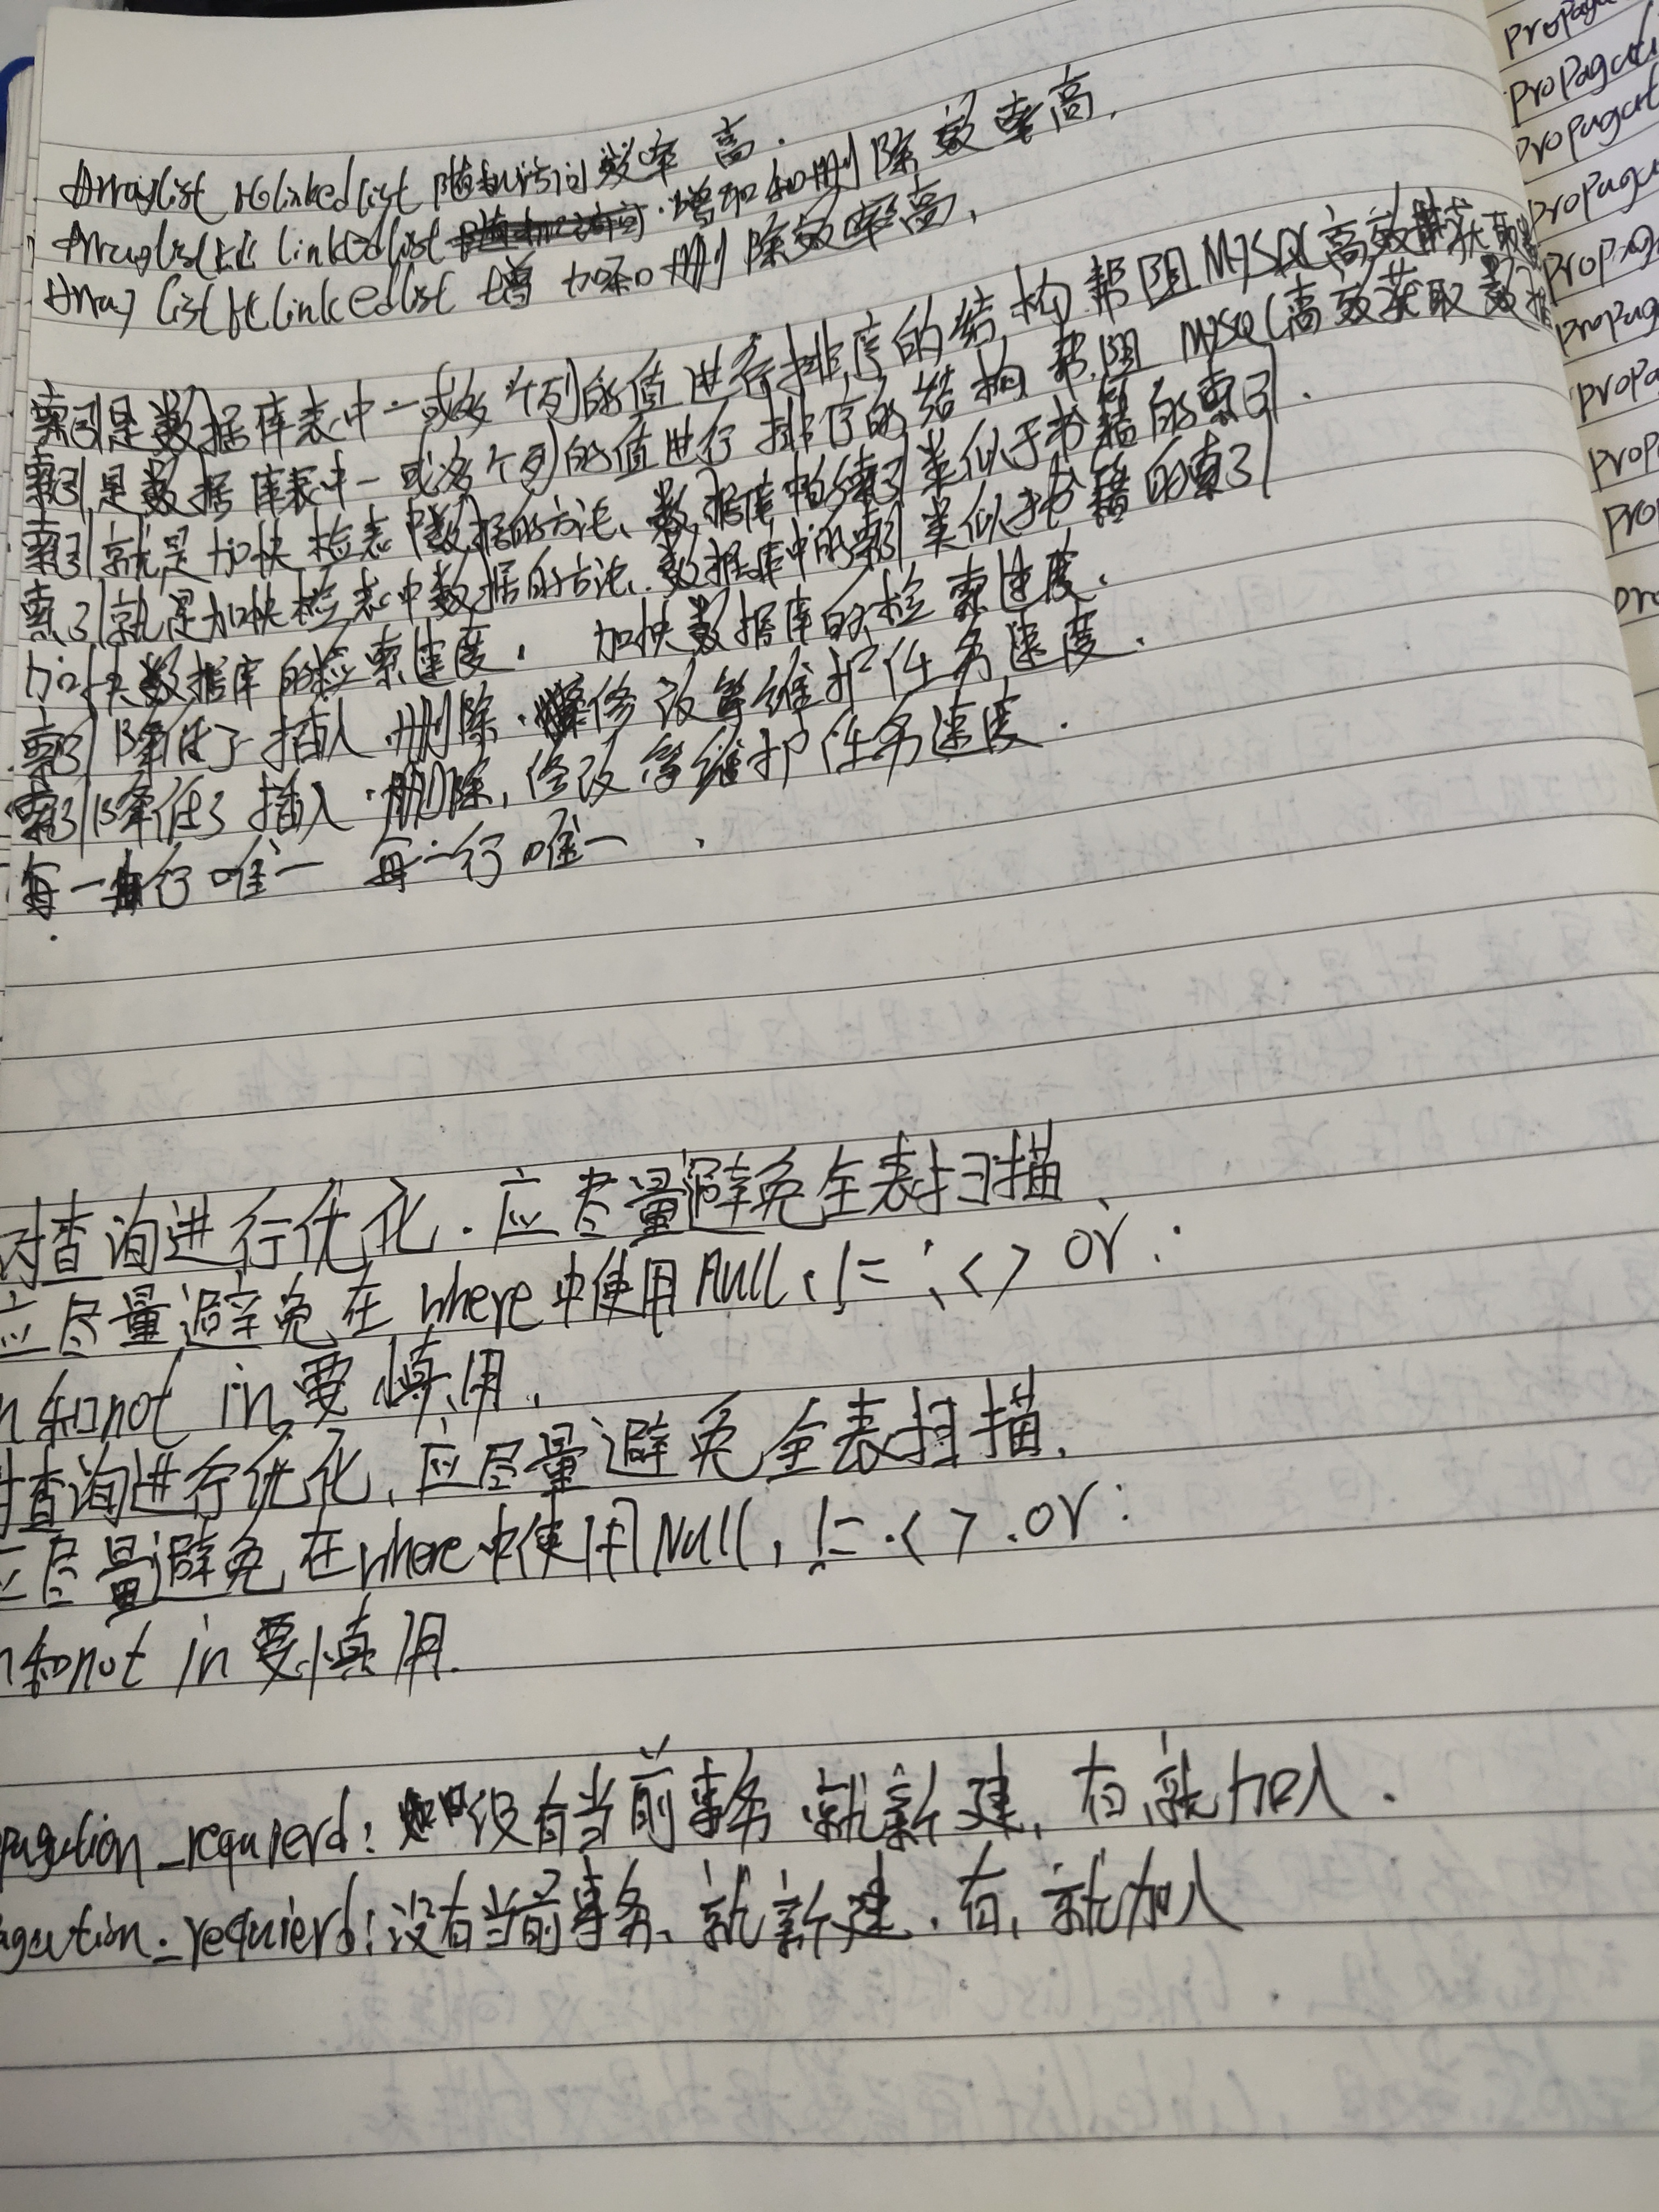 Arraylist 比linkedlist 随机访问效率高.
Arraylist比 linkedlist 增加和删除效率高,
Array list比linkedlist 增加和删除效率高,
索引是数据库表中一或多个列的值进行排序的结构 帮阻MYSQL高效获取
索引是数据库表中一或多个列的值进行排序的结构 帮阻 MYSQL高效获取数据
索引就是加快检表中数据的方法、数据库中的索引类似于书籍的索引.
索引就是加快检表中数据的方法、数据库中的索引类似于书籍的索引
加快数据库的检索速度, 加快数据库的检索速度,
索引降低了插入、删除、修改等维护任务速度,
索引降低了插入、删除,修改等维护任务速度.
每一行唯一 每一行唯一、
对查询进行优化.应尽量避免全表扫描、
应尽量避免在where中使用Null、!=、<> or:
n和not in要慎用,
对查询进行优化,应尽量避免全表扫描,
应尽量避免在where中使用Null, != .< > .or:
n和not in 要慎用.
pagation_requierd:没有当前事务就新建,有就加入.
agation._requierd:没有当前事务、就新建.有,就加入
Propaga
Propagati
Propagat
Propaga
Propag
Propag
Propa
Prop
Pro
pro